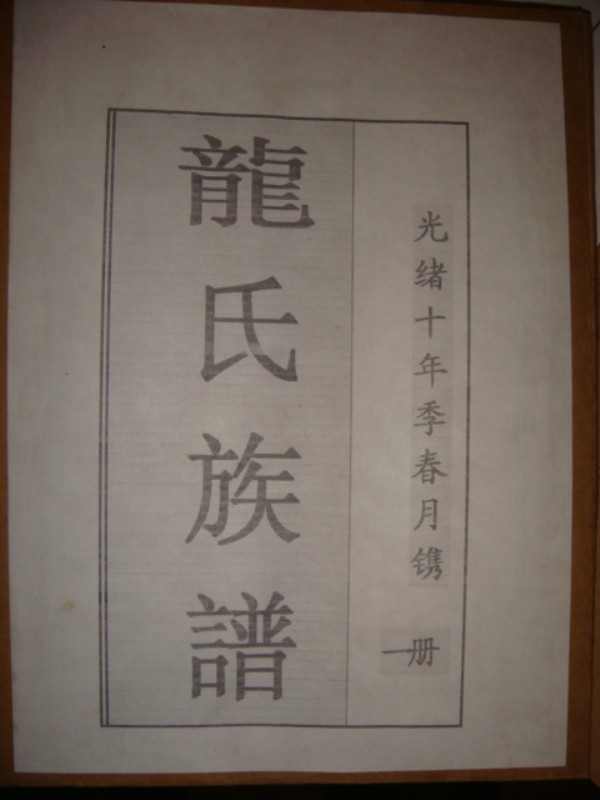 光绪十年季春月镌
一册
龍氏族譜